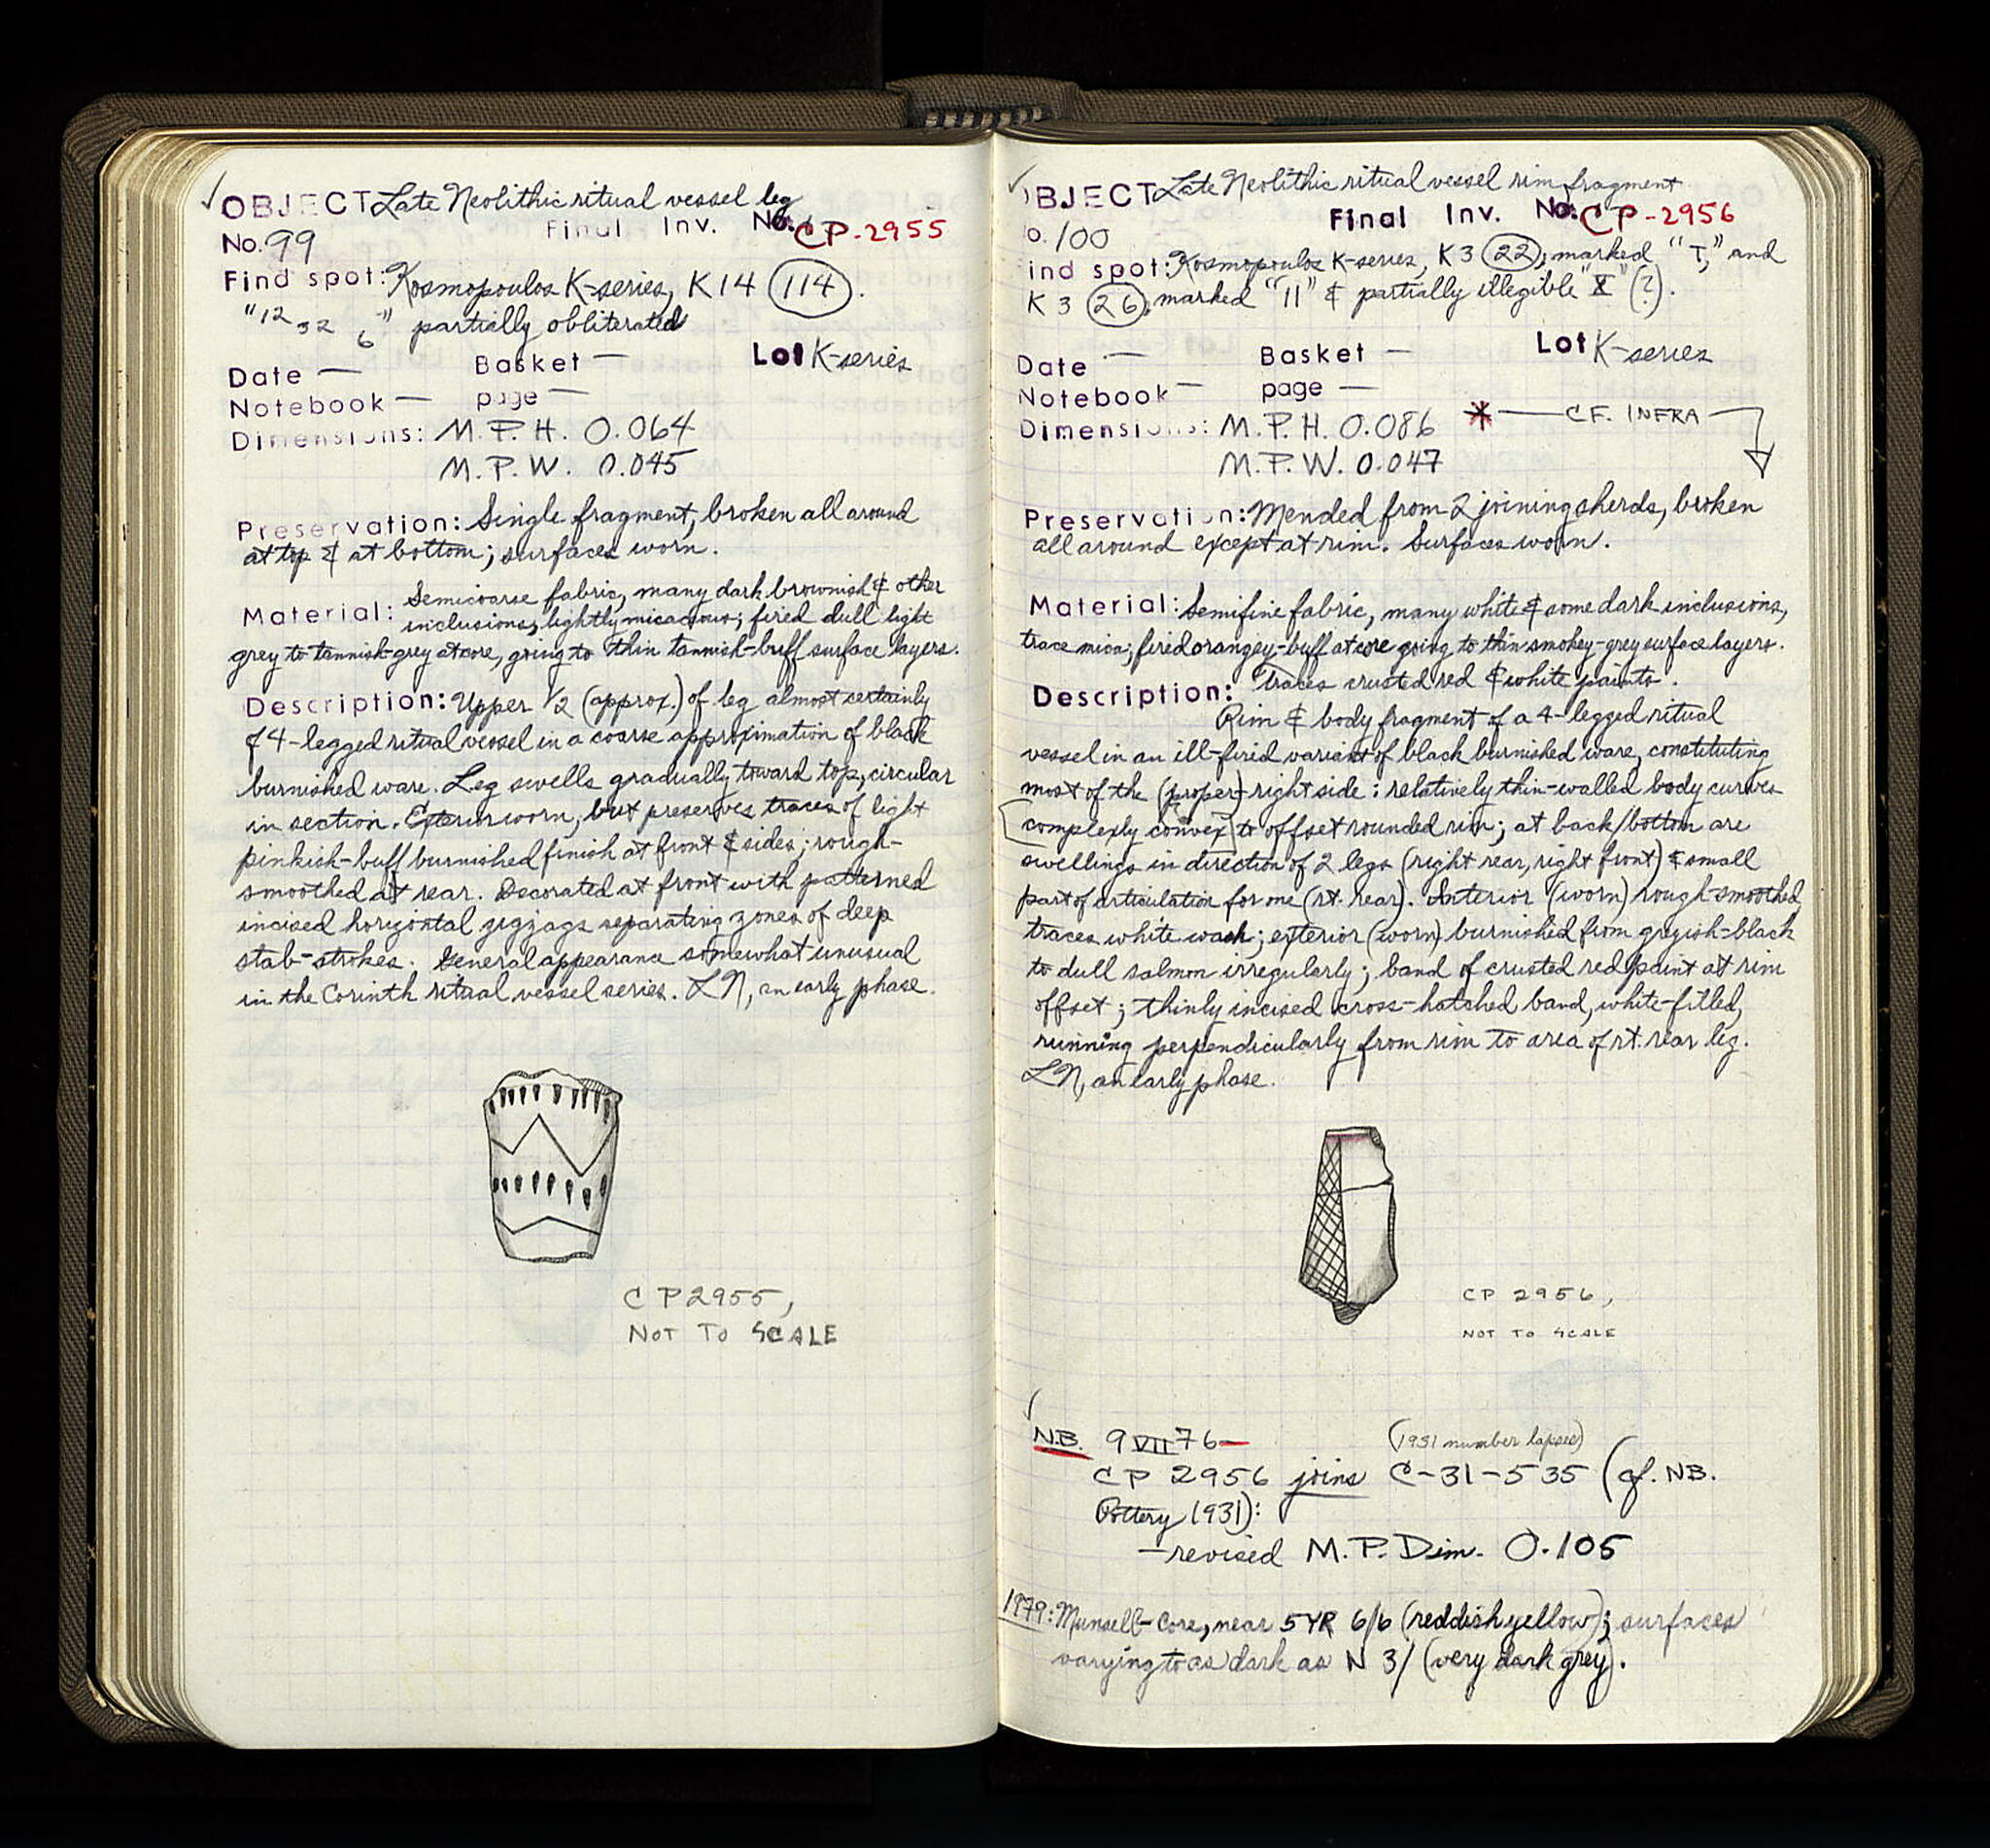 ✓ OBJECT Late Neolithic ritual vessel leg
Final Inv. No. CP-2955
No. 99
Find spot: Kosmopoulos K-series, K14 (114).
"12 32 6" partially obliterated
Date — Basket — Lot K-series
Notebook — page —
Dimensions: M.P.H. 0.064
M.P.W. 0.045
Preservation: Single fragment, broken all around
at top & at bottom; surfaces worn.
Semicoarse fabric, many dark brownish & other
Material: inclusions, lightly micaceous; fired dull light
grey to tannish-grey at core, going to thin tannish-buff surface layers.
Description: Upper ½ (approx.) of leg almost certainly
of 4-legged ritual vessel in a coarse approximation of black
burnished ware. Leg swells gradually toward top, circular
in section. Exterior worn, but preserves traces of light
pinkish-buff burnished finish at front & sides; rough-
smoothed at rear. Decorated at front with patterned
incised horizontal zigzags separating zones of deep
stab-strokes. General appearance somewhat unusual
in the Corinth ritual vessel series. LN, an early phase.
CP2955,
NOT TO SCALE
✓ BJECT Late Neolithic ritual vessel rim fragment
Final Inv. No. CP-2956
o. 100
ind spot: Kosmopoulos K-series, K3 (22), marked "T," and
K3 (26), marked "11" & partially illegible "X" (?).
Date — Basket — Lot K-series
Notebook — page —
Dimensions: M.P.H. 0.086 * — CF. INFRA
M.P.W. 0.047
Preservation: Mended from 2 joining sherds, broken
all around except at rim. Surfaces worn.
Material: Semifine fabric, many white & some dark inclusions,
trace mica; fired orangey-buff at core going to thin smokey-grey surface layers.
Description: Traces crusted red & white paints.
Rim & body fragment of a 4-legged ritual
vessel in an ill-fired variant of black burnished ware, constituting
most of the (proper) right side: relatively thin-walled body curves
[complexly convex] to offset rounded rim; at back/bottom are
swellings in direction of 2 legs (right rear, right front) & small
part of articulation for one (rt. rear). Interior (worn) rough-smoothed,
traces white wash; exterior (worn) burnished from greyish-black
to dull salmon irregularly; band of crusted red paint at rim
offset; thinly incised cross-hatched band, white-filled,
running perpendicularly from rim to area of rt. rear leg.
LN, an early phase.
CP 2956,
NOT TO SCALE
✓
N.B. 9 VII 76— (1931 number lapsed)
CP 2956 joins C-31-535 (cf. NB.
Pottery 1931):
—revised M.P.Dim. 0.105
1979: Munsell- Core, near 5YR 6/6 (reddish yellow); surfaces
varying to as dark as N 3/ (very dark grey).